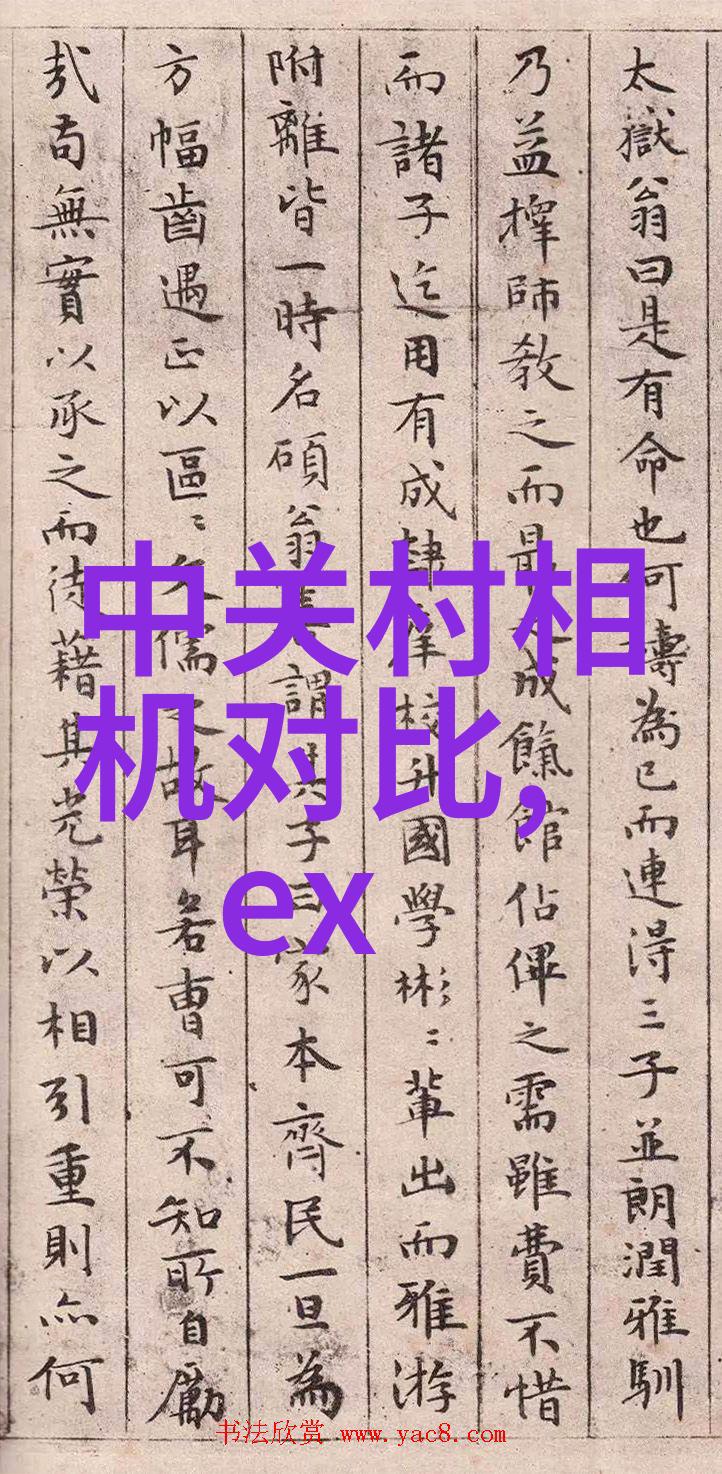 太嶽翁曰是有命也可為已而連得三子並朗潤雅馴
乃益擇師教之而最成餼館佔俾之需雖費不惜
而諸子迄用有成肆庠校升國學彬〻輩出而雅游
附離皆一時名碩翁謂其子曰家本齊民一旦為
方幅齒遇正以區〻久儒之故耳若曹可不知所自勵
哉苟無實以承之而徒藉其光榮以相引重則亦何
中关村相
机对比,
ex
书法欣赏 www.yac8.com